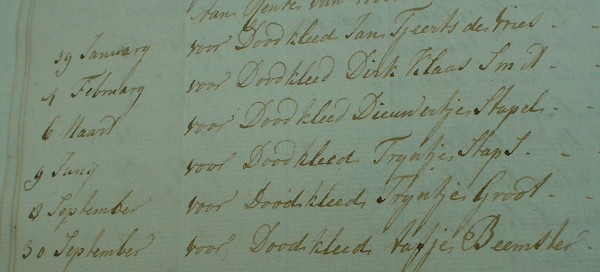 Jans
19 January voor Doodkleed Jan Tjeerts des Vries - -
4 February voor Doodkleed Dirk Klaas Smit -
6 Maart voor Doodkleed Dieuwertjes Stapel - -
9 Juny voor Doodkleed Tryntjes Staps - -
8 September voor Doodkleed Tryntjes Groot - -
30 September voor Doodkleed Aafjes Beemster -